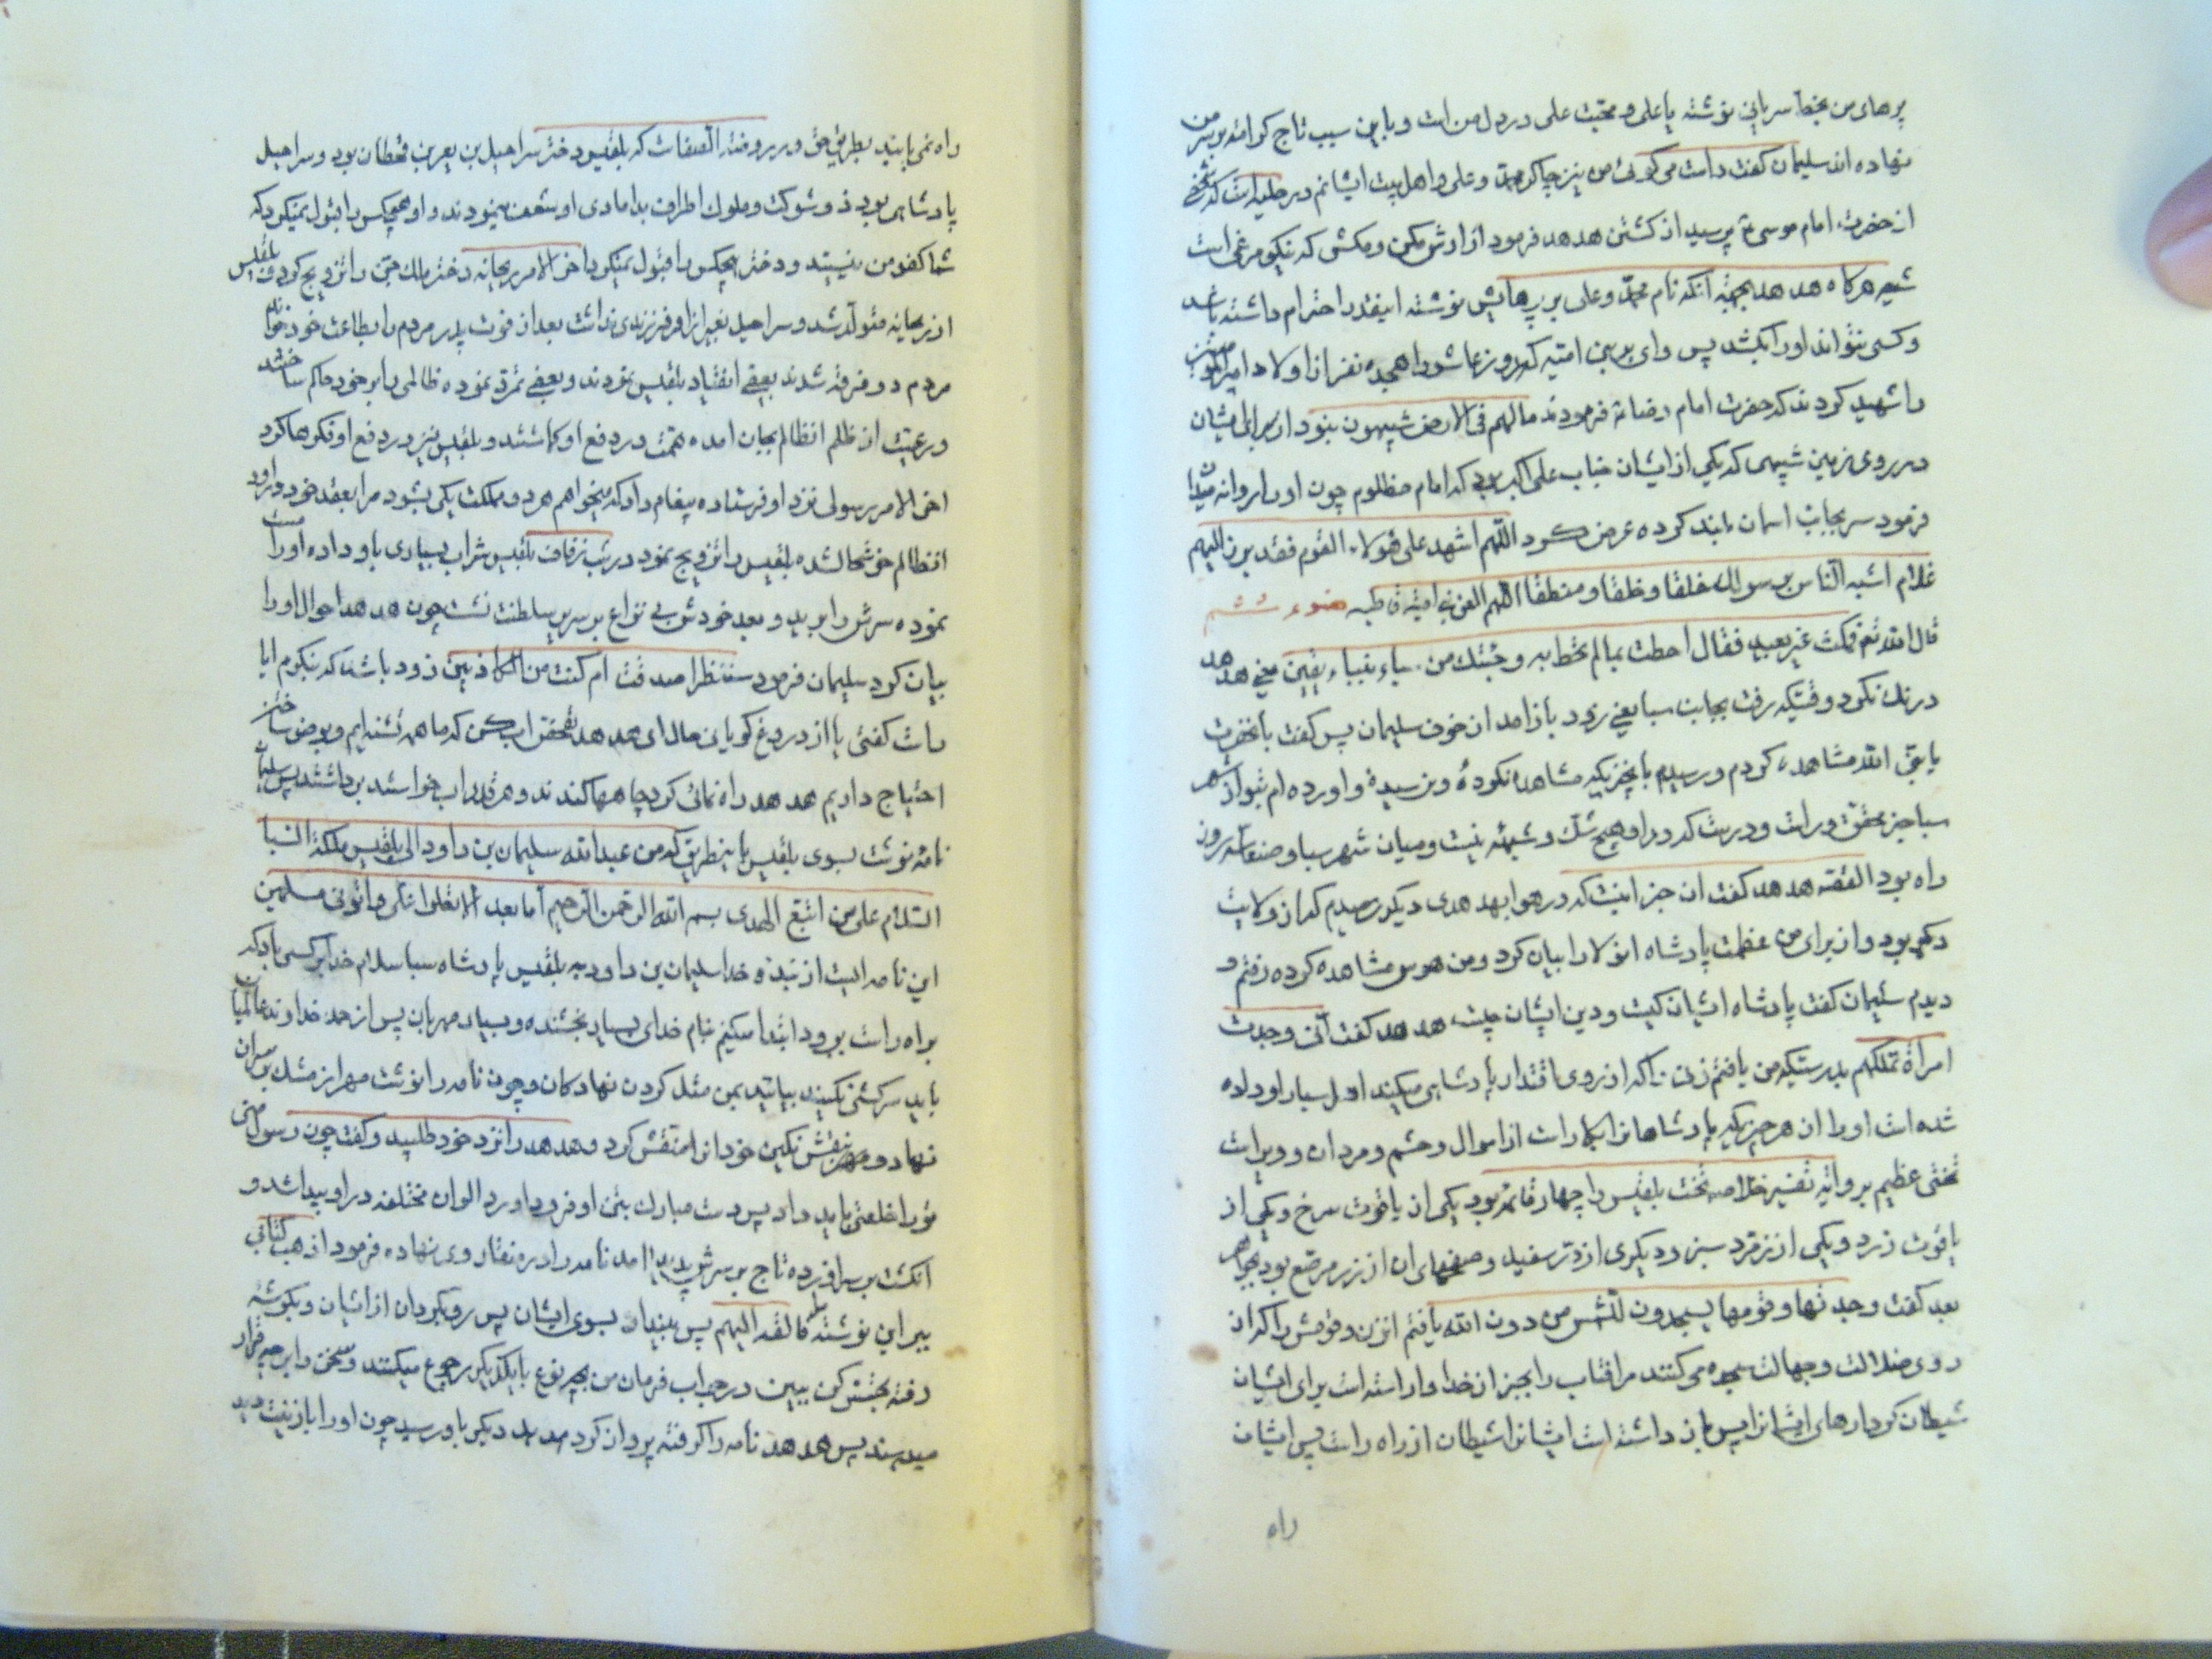 پرهای من بخط سریانی نوشته یا علی و محبت علی در دل من است و باین سبب تاج کرامت بر سر من
نهاده اند سلیمان گفت راست می گوئی من نیز چاکر محمد و علی و اهل بیت ایشانم در حلیه است که شخصی
از حضرت امام موسی ع پرسید از کشتن هدهد فرمود ازارش مکن و مکش که نیکو مرغی است
شیعه هرکاه هدهد بجهة انکه نام محمد و علی بر پرهایش نوشته اینقدر احترام داشته باشد
و کسی نتواند او را بکشد پس وای بر بنی امیه که روز عاشورا هجده نفر از اولاد امیرالمؤمنین
را شهید کردند که حضرت امام رضا ع فرمودند مالهم فی الارض شبیهون نبود از برای ایشان
در روی زمین شبیهی که یکی از ایشان جناب علی اکبر بود که امام مظلوم چون او را روانه میدان
فرمود سر بجانب اسمان بلند کرده عرض کرد اللهم اشهد علی هؤلاء القوم فقد برز الیهم
غلام اشبه الناس برسولک خلقا و خلقا و منطقا اللهم العن بنی امیة قاطبه ضوء ششم
قال الله تعم فمکث غیر بعید فقال احطت بمالم تحط به و جئتک من سباء بنباء یقین یعنی هدهد
درنک نکرد وقتیکه رفت بجانب سبا یعنی زود باز امد از خوف سلیمان پس گفت بانحضرت
یا نبی الله مشاهده کردم و رسیدم بانچیزیکه مشاهده نکودهٔ و نرسیدهٔ و اورده ام بتو از شهر
سبا خبر محقق و راست و درست که در او هیچ شک و شبهه نیست و میان شهر سبا و صنعا سه روز
راه بود القصه هدهد گفت ان خبر اینست که در هوا بهدهدی دیکر رسیدم که از ولایت
دیکر بود و از برای من عظمت پادشاه انولا را بیان کرد و من هوس مشاهده کرده رفتم و
دیدم سلیمان گفت پادشاه ایشان کیست و دین ایشان چیست هدهد گفت انی وجدت
امراة تملکهم بدرستیکه من یافتم زنی را که از روی اقتدار پادشاهی میکند اهل سبا را و داده
شده است او را از هر چیزیکه پادشاهانرا بکار است از اموال و حشم و مردان و ویراست
تختی عظیم بروایة تفسیر خلاصه تخت بلقیس را چهار قائمه بود یکی از یاقوت سرخ و یکی از
یاقوت زرد و یکی از زمرد سبز و دیکری از در سفید و صفهای ان از زر مرصع بود بجواهر
بعد گفت وجدتها و قومها یسجدون للشمس من دون الله یافتم انزن و قومش را که از
روی ضلالت و جهالت سجده می کنند مر افتاب را بجز از خدا و اراسته است برای ایشان
شیطان کردارهای ایشانرا پس باز داشته است ایشانرا شیطان از راه راست پس ایشان
راه
راه نمی یابند بطریق حق و در روضة الصفاست که بلقیس دختر سراحیل بن یعرب قحطان بود و سراحیل
پادشاهی بود ذو شوکت و ملوک اطراف بدامادی او شعف مینمودند و او هیچکس را قبول نمیکرد که
شما کفو من نیستید و دختر هیچکس را قبول نمیکرد اخر الامر ریحانه دختر ملک جن را تزویج کرد بلقیس
از ریحانه متولد شد و سراحیل بغیر از او فرزندی نداشت بعد از فوت پدر مردم را بطاعت خود خواند
مردم دو فرقه شدند بعضی انقیاد بلقیس نمودند و بعضی تمرد نموده ظالمی را بر خود حاکم ساختند
و رعیت از ظلم انظالم بجان امده همت در دفع او کماشتند و بلقیس نیز در دفع او فکرها کرد
اخر الامر رسولی نزد او فرستاده پیغام داد که میخواهم هر دو مملکت یکی بشود مرا بعقد خود دراورد
انظالم خوشحالشده بلقیس را تزویج نمود در شب زفاف بلقیس شراب بسیاری باو داده او را مست
نموده سرش را برید و بعد خودش بی نزاع بر سریر سلطنت نشست چون هدهد احوال او را
بیان کرد سلیمان فرمود سننظر اصدقت ام کنت من الکاذبین زود باشد که بنکرم ایا
راست گفتی یا از دروغ گویانی حال ای هدهد تفحص اب کن که ما همه تشنه ایم و بوضو ساختن
احتیاج داریم هدهد راه نمائی کرد چاهها کندند و هر قدر اب خواستند برداشتند پس سلیمان
نامه نوشت بسوی بلقیس باینطریق که من عبدالله سلیمان بن داود الی بلقیس ملکة السبا
السلام علی من اتبع الهدی بسم الله الرحمن الرحیم اما بعد الا تعلوا علی و اتونی مسلمین
این نامه ایست از بنده خدا سلیمان بن داود به بلقیس پادشاه سبا سلام خدا بر کسی باد که
براه راست برود ابتدا میکنم بنام خدای بسیار بخشنده و بسیار مهربان پس از حمد خداوند عالمیان
باید سرکشی نکنید بیائید بمن مثل کردن نهادکان و چون نامه را نوشت مهر از مشک بر سر ان
نهاد و مهر بنقش نکین خود انرا منقش کرد و هدهد را نزد خود طلبید و گفت چون رسول منی
تو را خلعتی باید داد پس دست مبارک بتن او فرود اورد الوان مختلفه در او پیدا شد و
انکشت بر سر او زده تاج بر سرش پدید امد نامه را در منقار وی نهاده فرمود اذهب بکتابی
ببر این نوشته را فالقه الیهم پس بینداز بسوی ایشان پس رو بکردان از ایشان و بکوشهٔ
رفته تجسس کن ببین در جواب فرمان من بچه نوع با یکدیکر رجوع میکنند و سخن را بر چه قرار
میدهند پس هدهد نامه را کرفته پرواز کرد دیکر باو رسید چون او را با زینت دید